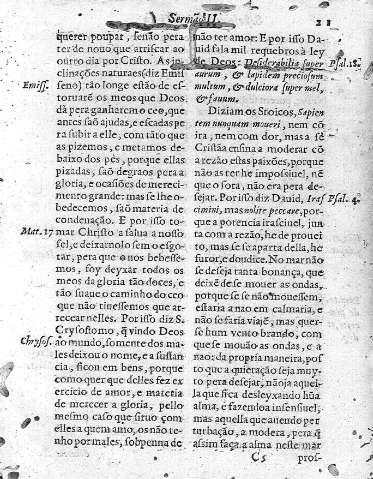 Sermaõ II.
21
querer poupar, senão pera
ter de nouo que arriscar ao
outro dia por Christo. As in
clinações naturaes (diz Emis
seno) tão longe estão de es-
toruarẽ os meos que Deos
dà pera ganharem o ceo, que
antes saõ ajudas, e escadas pe
ra subir a elle, com tãto que
as pizemos, e metamos de-
baixo dos pès, porque ellas
pizadas, saõ degraos pera a
gloria, e ocasiões de mereci-
mento grande: mas se lhe o-
bedecemos, saõ materia de
condenação. E por isso to-
mar Christo a salua a nosso
fel, e deixarnolo sem o esgo-
tar, pera que o nos bebesse-
mos, foy deyxar todos os
meos da gloria tão doces, e
tão suaue o caminho do ceo
que não tiuessemos que ar-
recear nelles. Por isso diz S.
Crysostomo, q̃ vindo Deos
ao mundo, somente dos ma-
les deixou o nome, e a sustan
cia, ficou em bens, porque
como quer que delles fez ex
ercicio de amor, e materia
de merecer a gloria, pello
mesmo caso que siruo com
elles a quem amo, os não te-
nho por males, sobpenna de
Emiss.
Mat. 17
Chrysos.
não ter amor: E por isso Da-
uid fala mil requebros à ley
de Deos: Desiderabilia super
aurum, & lapidem preciosum
multum, & dulciora super mel,
& fauum.
Diziam os Stoicos, Sapien
tem nunquam moueri, nem cõ
ira, nem com dor, mas a fé
Cristãa ensina a moderar cõ
a rezão estas paixões, porque
não as ter he impossiuel, nẽ
que o fora, não era pera de-
sejar. Por isso diz Dauid, Iras
cimini, mas nolite peccare, por-
que a potencia irasciuel, jun-
ta com a rezão, he de prouei
to, mas se se aparta della, he
furor, e doudice. No mar não
se deseja tanta bonança, que
deixẽ de se mouer as ondas,
porque se se não mouessem,
estaria a nao em calmaria, e
não se faria viajẽ, mas quer-
se hum vento brando, com
que se mouão as ondas, e a
nao: da propria maneira, pos
to que a quietação seja muy-
to pera desejar, não ja aquel-
la que fica desleyxando hũa
alma, e fazendoa insensiuel;
mas aquella que auendo per
turbação, a modera, pera q̃
assim faça a alma neste mar
Psal. 18.
Psal. 4.
C5
pros-